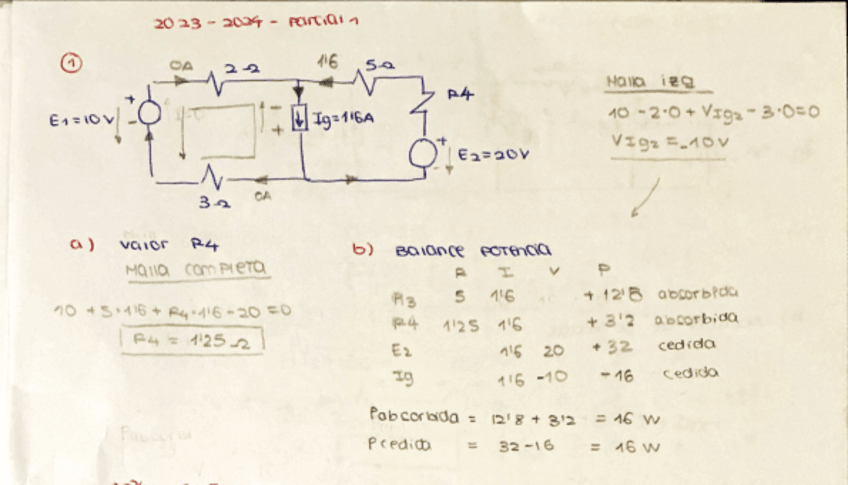 2023-2024 - Parcial 1
①
0A
2Ω
1'6
5Ω
R4
E1=10V
+
-
-
+
Ig=1'6A
+
-
E2=20V
3Ω
0A
Malla izq
10 - 2·0 + VIg2 - 3·0 = 0
VIg2 = -10V
a) valor R4
Malla completa
10 + 5·1'6 + R4·1'6 - 20 = 0
R4 = 1'25Ω
b) Balance potencia
R I V P
R3 5 1'6 + 12'8 absorbida
R4 1'25 1'6 + 3'2 absorbida
E2 1'6 20 + 32 cedida
Ig 1'6 -10 -16 cedida
Pabsorbida = 12'8 + 3'2 = 16 W
Pcedida = 32 - 16 = 16 W